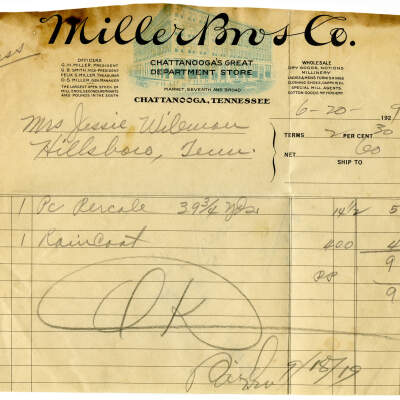 Miller Bros Co.
OFFICERS
G.H. MILLER, PRESIDENT
G.B. SMITH, VICE-PRESIDENT
FELIX G. MILLER, TREASURER
G.S. MILLER, GEN. MANAGER
THE LARGEST OPEN STOCK OF
MILL ENDS, SECONDS, REMNANTS
AND POUNDS IN THE SOUTH
CHATTANOOGA'S GREAT
DEPARTMENT STORE
MARKET, SEVENTH AND BROAD
CHATTANOOGA, TENNESSEE
WHOLESALE
DRY GOODS, NOTIONS
MILLINERY
LADIES & MENS FURNISHINGS
CLOTHING, SHOES, CARPETS, ETC.
SPECIAL MILL AGENTS
COTTON GOODS
6-20- 1929
Mrs Jessie Wileman
Hillsboro, Tenn.
TERMS 2 PER CENT 30
NET 60
SHIP TO
1 Pc Percale 39 3/4 Yds 14 1/2 5
1 Raincoat 400 4
9
PP
9
OK
9/18/19